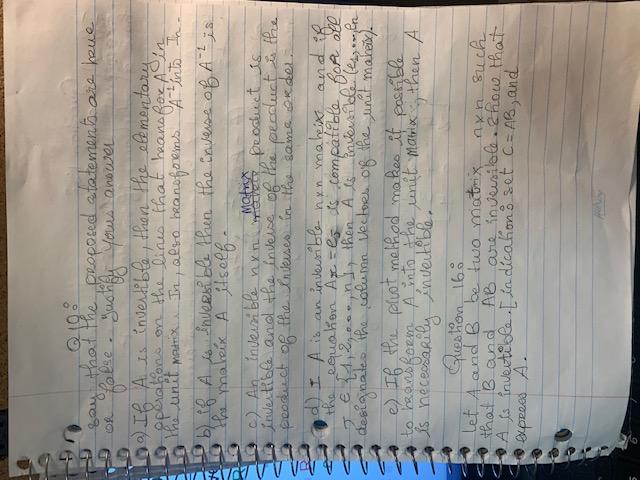 Q 10:
say that the proposed statements are true
or false. Justify your answer
a) If A is invertible, then the elementary
operations on the lines that transfor A in
the unit matrix In, also transforms A⁻¹ into In.
b) if A is invertible then the inverse of A⁻¹ is
the matrix A itself.
c) An invertible nxn Matrix product is
invertible and the inverse of the product is the
product of the inverses in the same order.
d) I A is an invertible nxn matrix and if
the equation Ax = ej is compatible for all
J ∈ {1, 2, ..., n}, then A is invertible (e1, ..., en
designates the column vectors of the unit matrix).
e) If the pivot method makes it possible
to transform A into the unit matrix, then A
is necessarily invertible.
Question 16:
Let A and B be two matrix nxn such
that B and AB are invertible. Show that
A is invertible. [Indications set C = AB, and
express A.